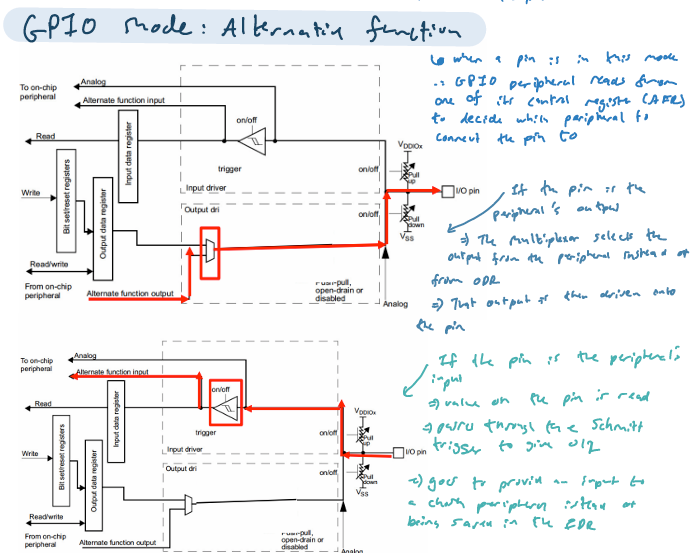 GPIO mode: Alternatin function
↳ when a pin is in this mode
∴ GPIO peripheral reads from
one of its control register (AFR)
to decide which peripheral to
connect the pin to
Analog
To on-chip
peripheral
Alternate function input
on/off
Read
Input data register
trigger
Input driver
VDDIOx
on/off
Pull
up
I/O pin
Write
Bit set/reset registers
Output data register
Output dri
on/off
Pull
down
VSS
Read/write
From on-chip
peripheral
Alternate function output
Push-pull,
open-drain or
disabled
Analog
If the pin is the
peripheral's output
⇒ The multiplexor selects the
output from the peripheral instead of
from ODR
⇒ That output is then driven onto
the pin
Analog
To on-chip
peripheral
Alternate function input
on/off
Read
Input data register
trigger
Input driver
VDDIOx
on/off
Pull
up
I/O pin
Write
Bit set/reset registers
Output data register
Output dri
on/off
Pull
down
VSS
Read/write
From on-chip
peripheral
Alternate function output
Push-pull,
open-drain or
disabled
Analog
If the pin is the peripheral's
input
⇒ value on the pin is read
⇒ passes through the Schmitt
trigger to give
⇒ goes to provide an input to
a peripheral instead of
being in the